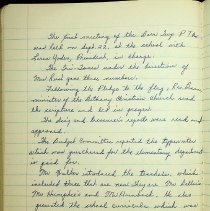 The first meeting of the Dora Twp P.T.A.
was held on Sept. 22, at the school with
Loren Yoder, President, in charge.
The Tri-Tones under the direction of
Mrs Rood gave three numbers.
Following the Pledge to the flag, Rev.
minister of the Bethany Christian Church read
the scripture and led in prayer.
The Sec's and treasurer's reports were read and
approved.
The Budget Committee reported the typewriter
which was purchased for the elementary department
is paid for.
Mr. introduced the teachers which
included three that are new. They are Mrs
Mrs Humphrey and Mr. He also
presented the school curricular which was